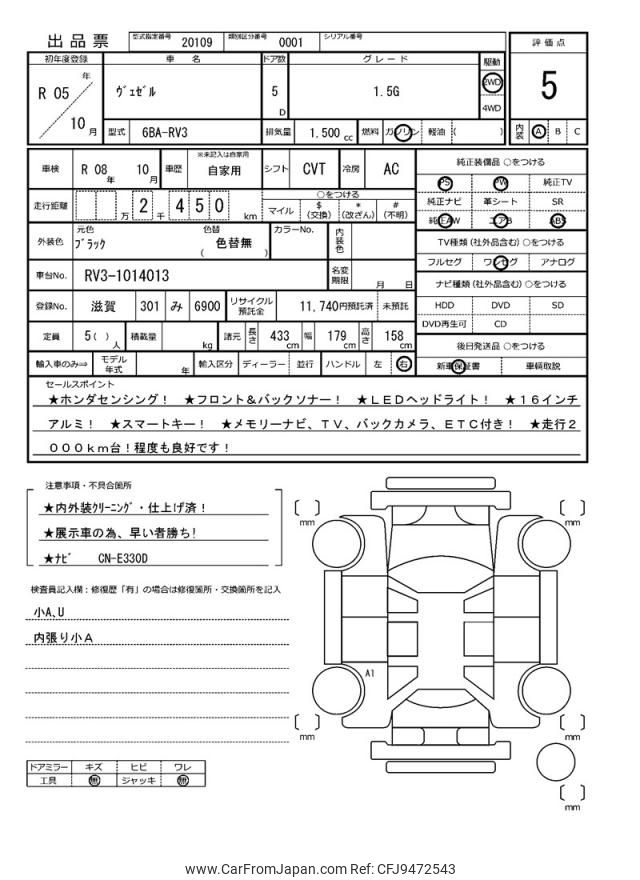 出品票 型式指定番号 20109 類別区分番号 0001 シリアル番号
評価点
5
内装 A B C
初年度登録 車名 ドア数 グレード 駆動
R 05 年 10 月 ヴェゼル 5 D 1.5G 2WD 4WD
型式 6BA-RV3 排気量 1.500 cc 燃料 ガソリン 軽油 ( )
車検 R 08 年 10 月 車歴 ※未記入は自家用 自家用 シフト CVT 冷房 AC
走行距離 万 2 千 4 5 0 km
○をつける
マイル $ (交換) * (改ざん) # (不明)
外装色 元色 ブラック 色替 ( 色替無 ) カラーNo. 内装色
車台No. RV3-1014013 名変期限 月 日
登録No. 滋賀 301 み 6900 リサイクル預託金 11,740円預託済 未預託
定員 5( ) 人 積載量 kg 諸元 長さ 433 cm 幅 179 cm 高さ 158 cm
輸入車のみ⇒ モデル年式 年 輸入区分 ディーラー 並行 ハンドル 左 右
純正装備品 ○をつける
PS PW 純正TV
純正ナビ 革シート SR
純正AW エアB ABS
TV種類 (社外品含む) ○をつける
フルセグ ワンセグ アナログ
ナビ種類 (社外品含む) ○をつける
HDD DVD SD
DVD再生可 CD
後日発送品 ○をつける
新車保証書 車輌取説
セールスポイント
★ホンダセンシング! ★フロント&バックソナー! ★LEDヘッドライト! ★16インチ
アルミ! ★スマートキー! ★メモリーナビ、TV、バックカメラ、ETC付き! ★走行2
000km台!程度も良好です!
注意事項・不具合箇所
★内外装クリーニング・仕上げ済!
★展示車の為、早い者勝ち!
★ナビ CN-E330D
検査員記入欄:修復歴「有」の場合は修復箇所・交換箇所を記入
小A,U
内張り小A
ドアミラー キズ ヒビ ワレ
工具 無 ジャッキ 無
mm
mm
A1
mm
mm
mm
www.CarFromJapan.com Ref: CFJ9472543